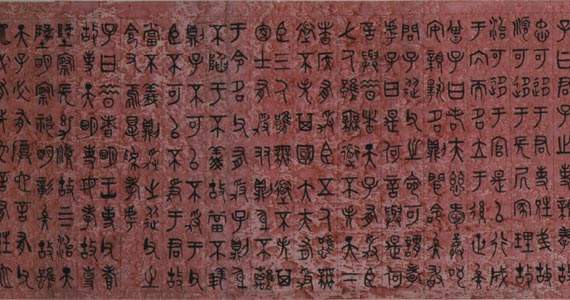 子曰君子之事親孝故
忠可移于君事兄弟故
順可移于長居家理故
治可移于官是以行成
于內而名立于後世矣
曾子曰若夫慈愛恭敬
安親揚名則聞命矣敢
問子從父之命可謂孝
乎子曰是何言與是何
言與昔者天子有爭臣
七人雖無道不失天下
諸侯有爭臣五人雖無
道不失其國大夫有爭
臣三人雖無道不失其家
士有爭友則身不離
于令名父有爭子則身
不陷于不義故當不義
則子不可以不爭于父
臣不可以不爭于君故
當不義則爭之從父之
令又焉得為孝乎
子曰昔者明王事父孝
故事天明事母孝故事
地察長幼順故上下治天
地明察神明彰矣故雖
天子必有尊也言有父也